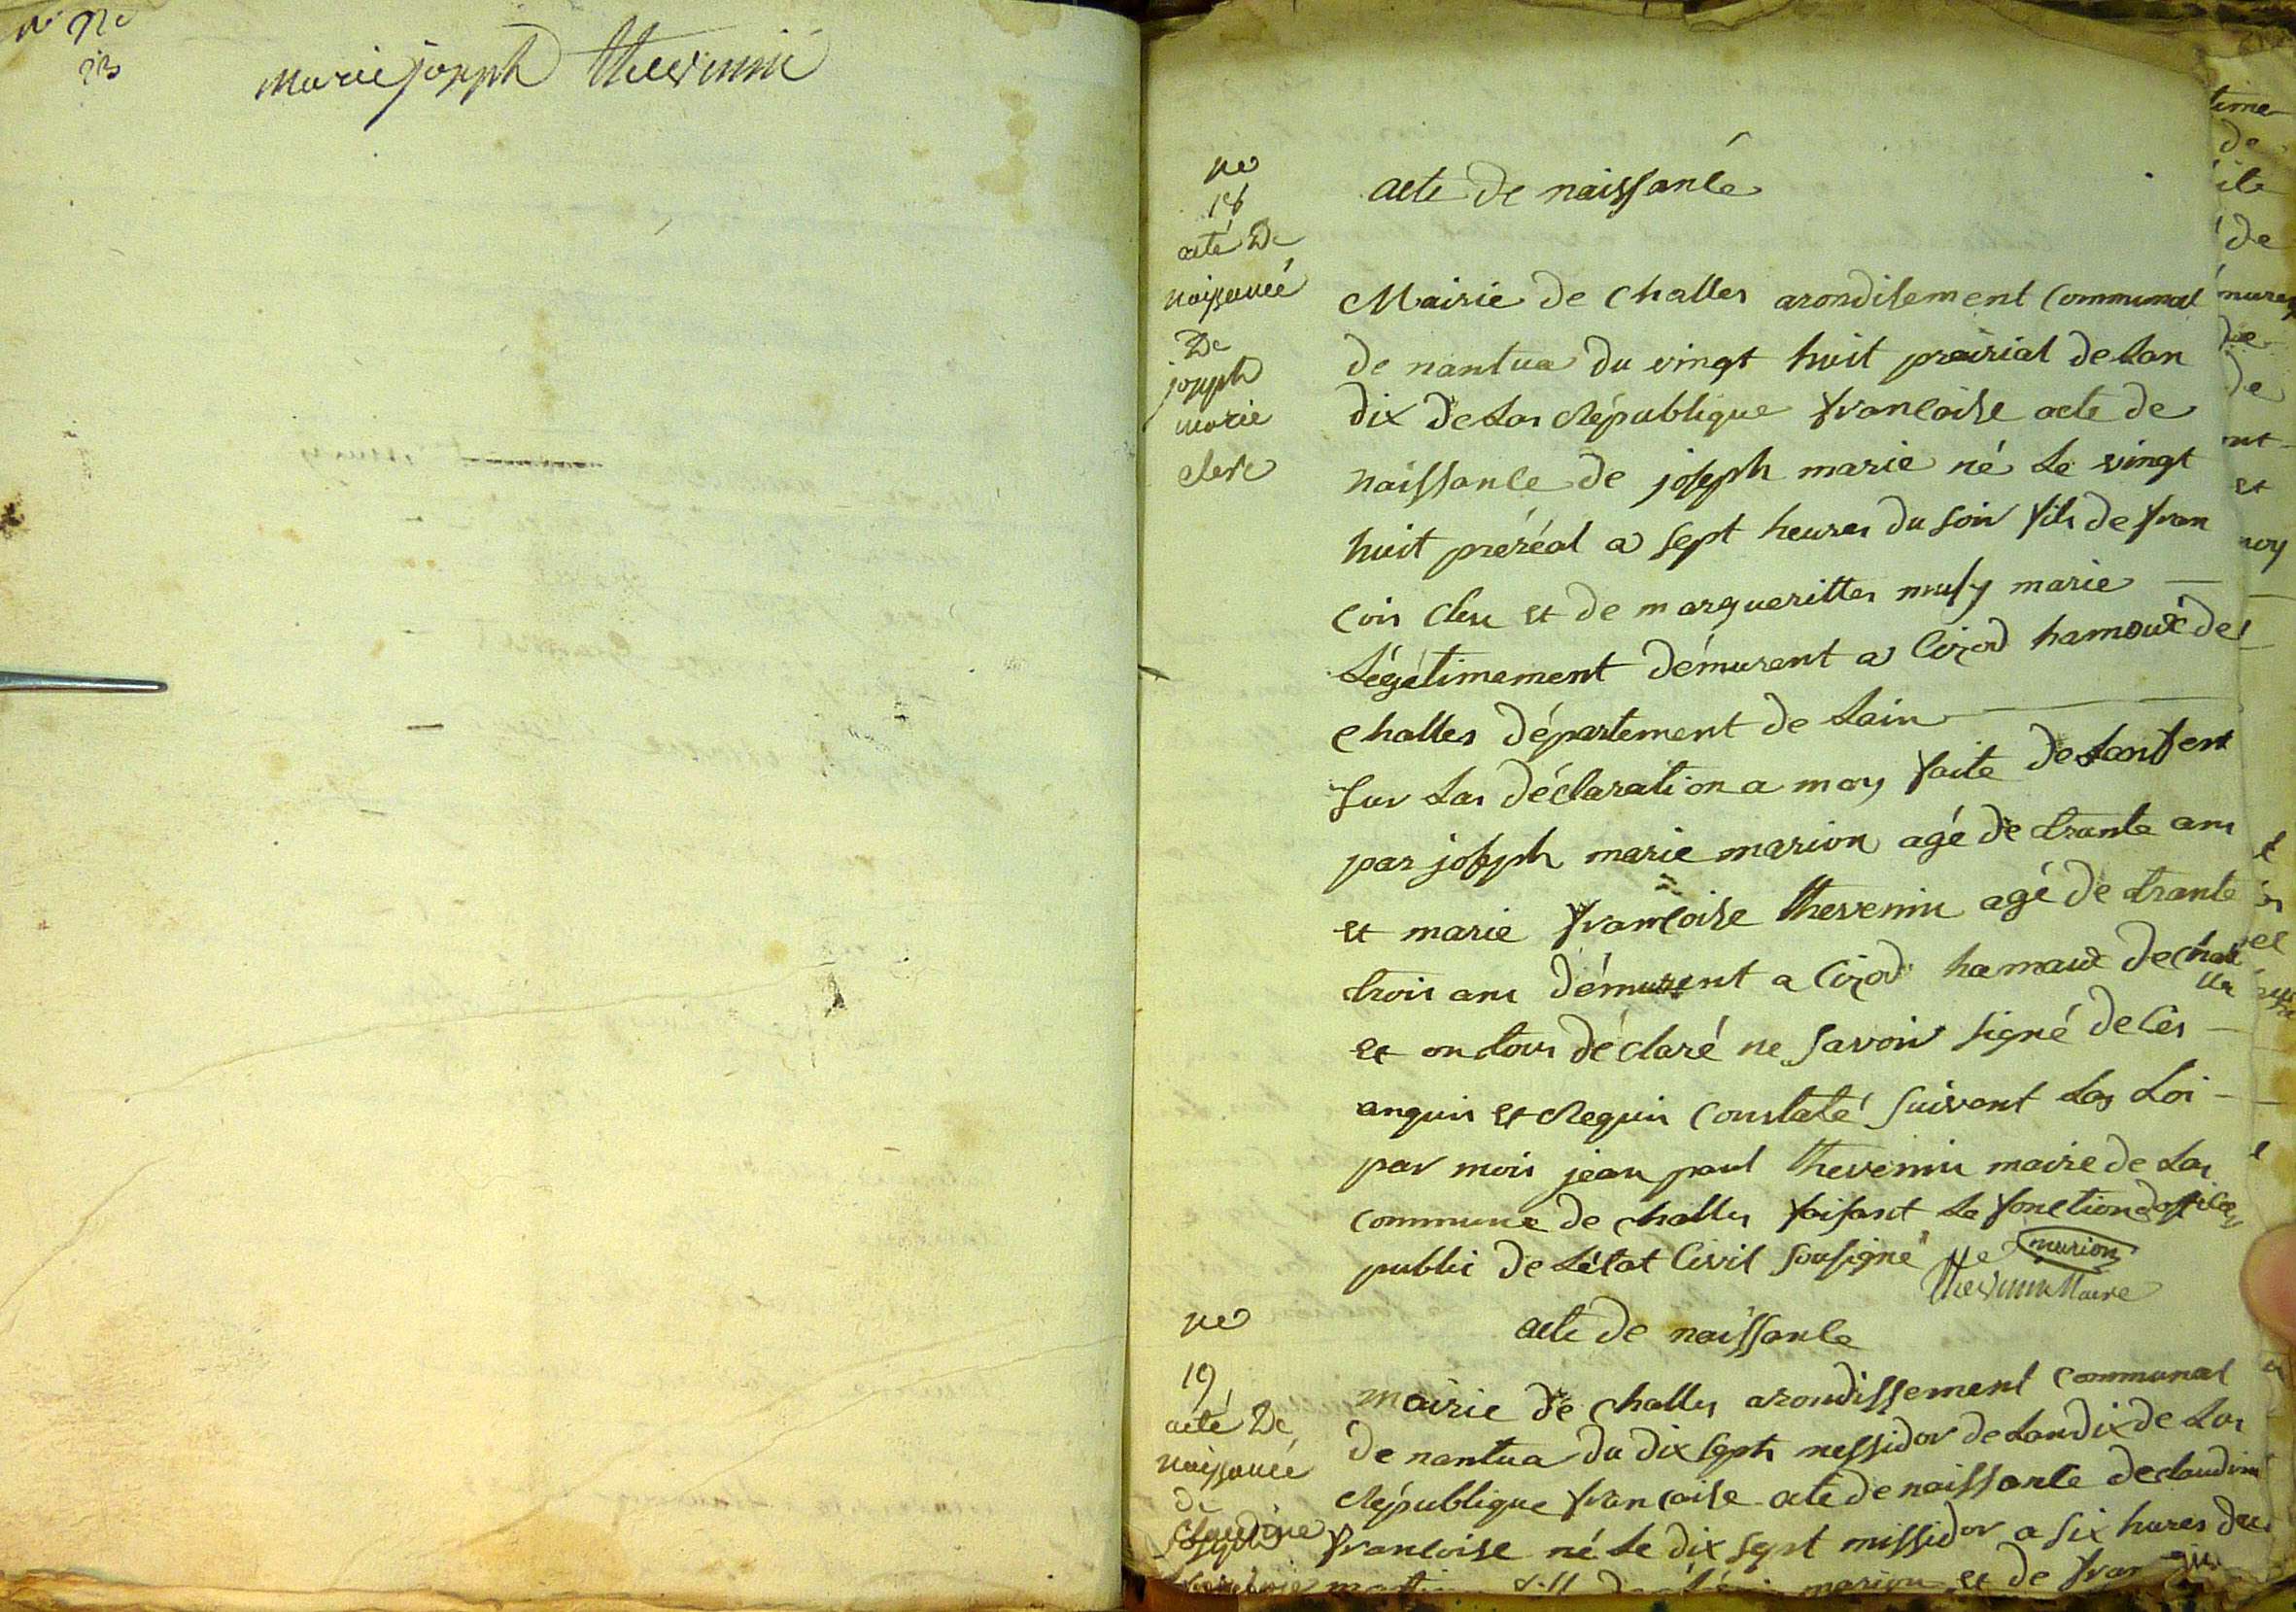 ne
23
marie joseph thevenin
ne
18
acte De
naissance
De
joseph
marie
clerc
acte de naissance
Mairie de challes arondisement communal
de nantua du vingt huit prairial de Lan
dix de La République françoise acte de
naissance de joseph marie né Le vingt
huit preréal a sept heures du soir fils de fran
cois clerc et de margueritte musy marie
Légétimement démurent a Cizod hamoux de
challes département de Lain
sur La déclaration a moy faite de Lenfent
par joseph marie marion agé de trante ans
et marie francoise thevenin agé de trante
trois ans démurent a Cizod hamaux de chall
les
et on tous déclaré ne savoir signé de Ces
anquis et Requis constaté suivent La Loi
par mois jean paul thevenin maire de La
commune de challes faisant La fonction doffice
public de Létat Civil sousigné
marion
thevenin Maire
ne
19
acte De
naissance
de
Claudine
acte de naissance
mairie de challes arondissement communal
de nantua du dix septs messidor de Lan dix de La
République françoise acte de naissance de claudine
francoise né Le dix sept missidor a six hures du
marion et de fran